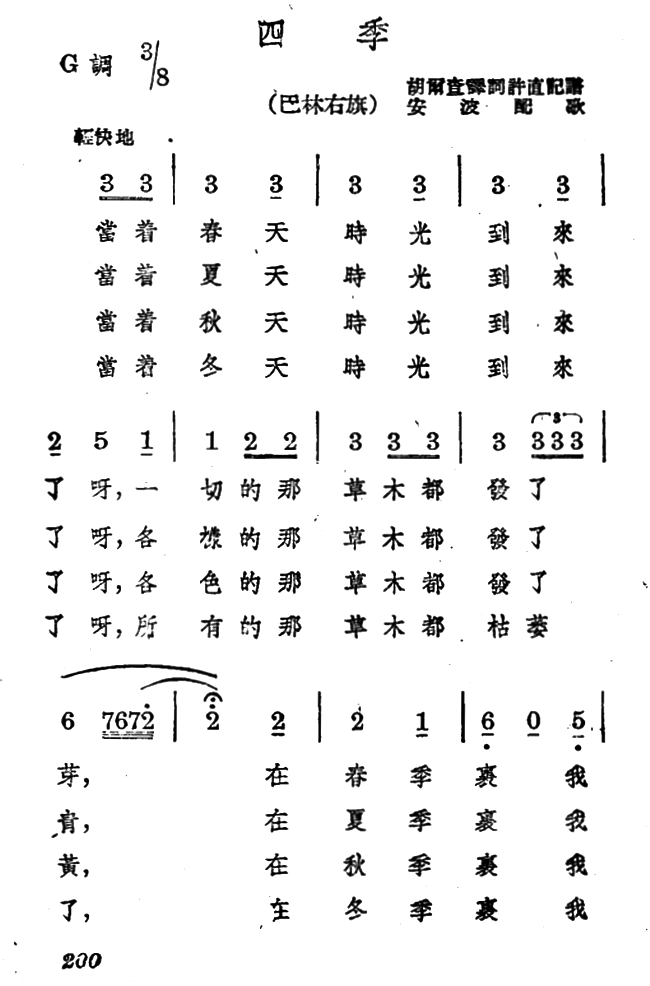 四 季
G 調 3/8
胡爾查譯詞許直記譜
(巴林右旗) 安波配歌
輕快地
3 3 | 3 3 | 3 3 | 3 3 |
當着 春天 時光 到來
當着 夏天 時光 到來
當着 秋天 時光 到來
當着 冬天 時光 到來
2 5 1 | 1 2 2 | 3 3 3 | 3 3 3 3 |
了呀,一 切的那 草木都 發了
了呀,各 樣的那 草木都 發了
了呀,各 色的那 草木都 發了
了呀,所 有的那 草木都 枯萎
6 7672 | 2 2 | 2 1 | 6 0 5 |
芽, 在 春季 裹 我
青, 在 夏季 裹 我
黃, 在 秋季 裹 我
了, 在 冬季 裹 我
200